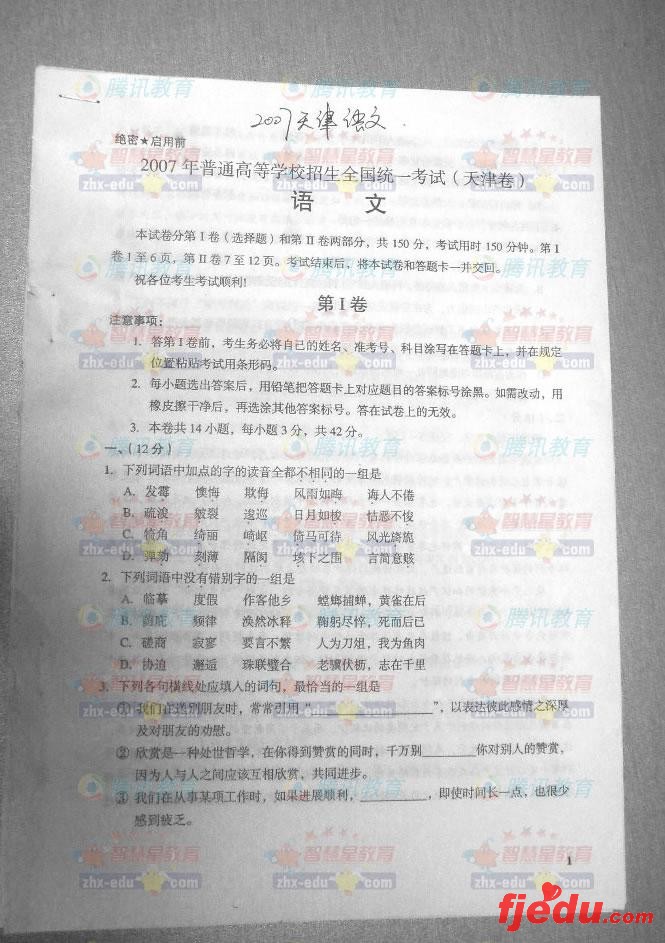 2007天津语文
绝密★启用前
2007年普通高等学校招生全国统一考试（天津卷）
语 文
本试卷分第Ⅰ卷（选择题）和第Ⅱ卷两部分，共150分，考试用时150分钟。第Ⅰ
卷1至6页，第Ⅱ卷7至12页。考试结束后，将本试卷和答题卡一并交回。
祝各位考生考试顺利!
第Ⅰ卷
注意事项：
1. 答第Ⅰ卷前，考生务必将自己的姓名、准考号、科目涂写在答题卡上，并在规定
位置粘贴考试用条形码。
2. 每小题选出答案后，用铅笔把答题卡上对应题目的答案标号涂黑。如需改动，用
橡皮擦干净后，再选涂其他答案标号。答在试卷上的无效。
3. 本卷共14小题，每小题3分，共42分。
一、（12分）
1. 下列词语中加点的字的读音全都不相同的一组是
A. 发霉 懊悔 欺侮 风雨如晦 诲人不倦
B. 疏浚 皴裂 逡巡 日月如梭 怙恶不悛
C. 犄角 绮丽 崎岖 倚马可待 风光旖旎
D. 弹劾 刻薄 隔阂 垓下之围 言简意赅
2. 下列词语中没有错别字的一组是
A. 临摹 度假 作客他乡 螳螂捕蝉，黄雀在后
B. 荫庇 频律 涣然冰释 鞠躬尽悴，死而后已
C. 磋商 寂寥 要言不繁 人为刀俎，我为鱼肉
D. 协迫 邂逅 珠联璧合 老骥伏枥，志在千里
3. 下列各句横线处应填入的词句，最恰当的一组是
① 我们在送别朋友时，常常引用“____________”，以表达彼此感情之深厚
及对朋友的劝慰。
② 欣赏是一种处世哲学，在你得到赞赏的同时，千万别______你对别人的赞赏，
因为人与人之间应该互相欣赏，共同进步。
③ 我们在从事某项工作时，如果进展顺利，________，即使时间长一点，也很少
感到疲乏。
1
腾讯教育
智慧星教育
zhx-edu.com
fjedu.com